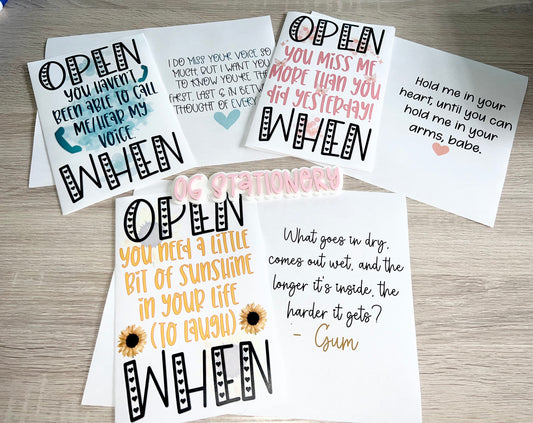 OPEN
YOU HAVEN'T
BEEN ABLE TO CALL
ME/HEAR MY
VOICE
WHEN
I DO MISS YOUR VOICE SO
MUCH, BUT I WANT YOU
TO KNOW YOU'RE THE
FIRST, LAST & IN BETWE
THOUGHT OF EVERY
OPEN
YOU MISS ME
MORE THAN YOU
DID YESTERDAY!
WHEN
Hold me in your
heart, until you can
hold me in your
arms, babe.
OG STATIONERY
OPEN
YOU NEED A LITTLE
BIT OF SUNSHINE
IN YOUR LIFE
(TO LAUGH)
WHEN
What goes in dry,
comes out wet, and the
longer it's inside, the
harder it gets?
- Gum